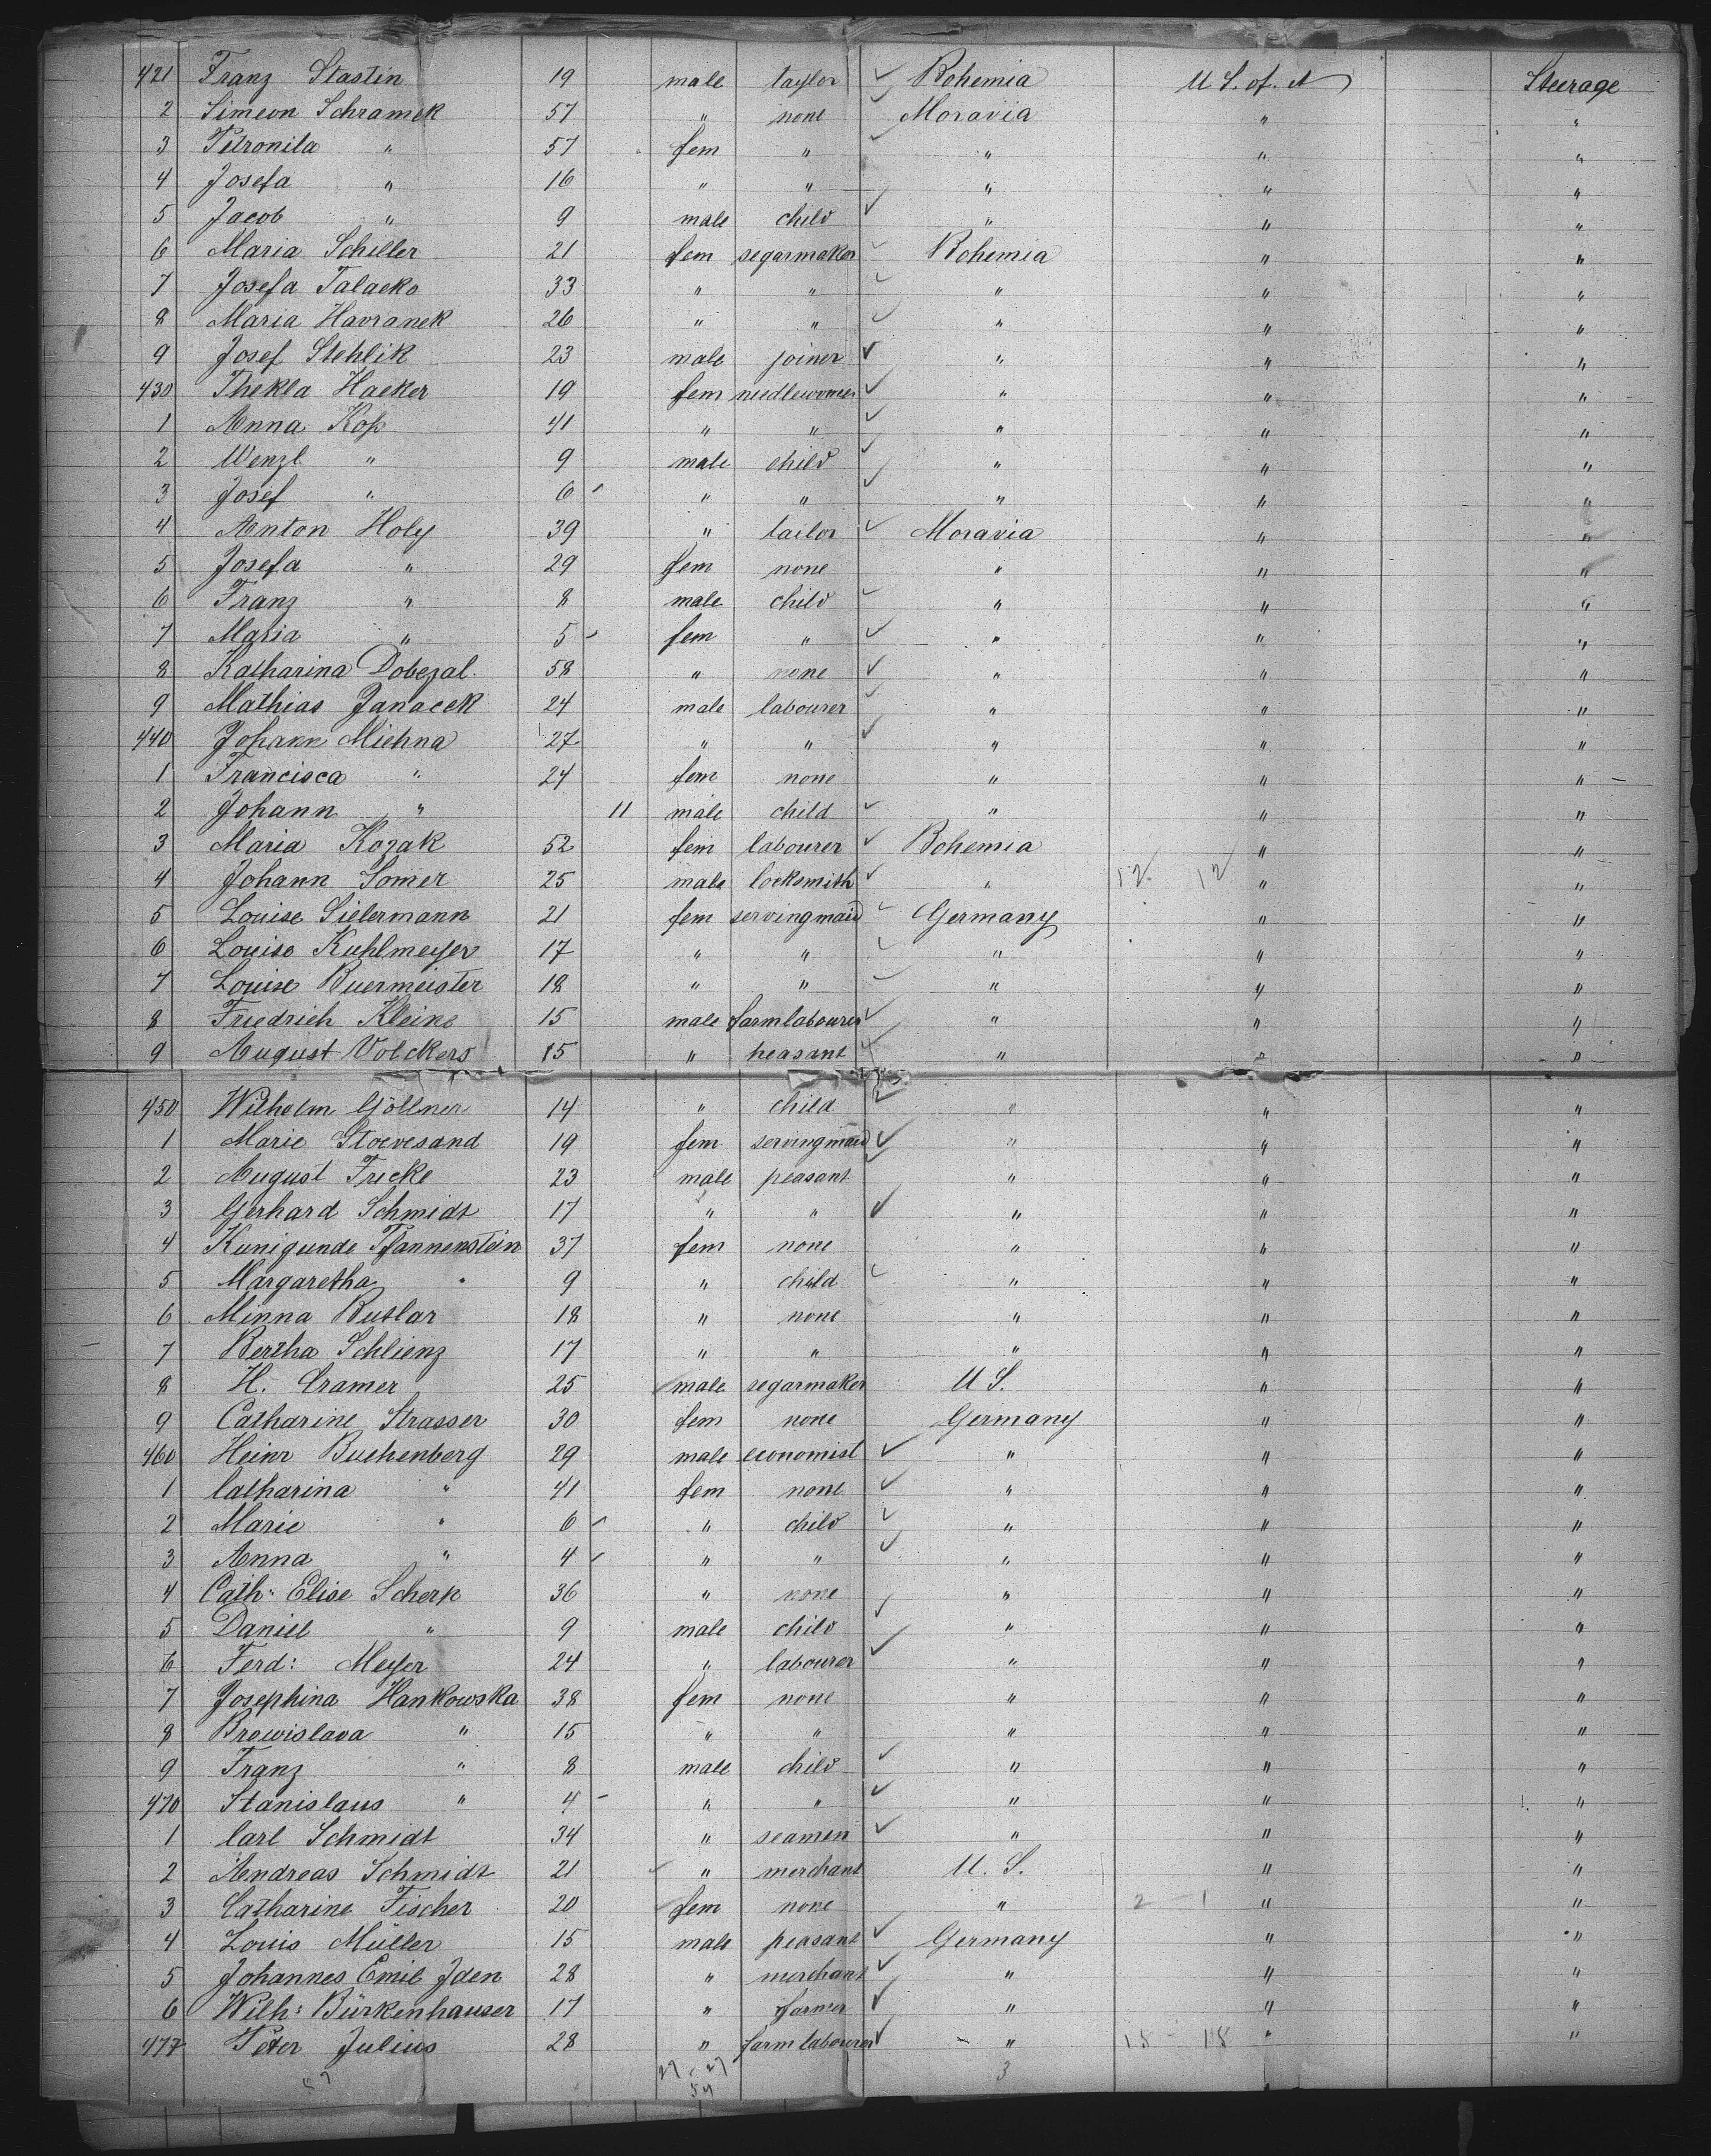 421 Franz Stastin 19 male taylor ✓ Bohemia U S. of. A Steerage
2 Simeon Schramek 57 " none ✓ Moravia " "
3 Petronila " 57 fem " ✓ " " "
4 Josefa " 16 " " " " "
5 Jacob " 9 male child ✓ " " "
6 Maria Schiller 21 fem segarmaker ✓ Bohemia " "
7 Josefa Talacko 33 " " ✓ " " "
8 Maria Havranek 26 " " ✓ " " "
9 Josef Stehlik 23 male joiner ✓ " " "
430 Thekla Hacker 19 fem ✓ " " "
1 Anna Kop 41 " " ✓ " " "
2 Wenzl " 9 male child ✓ " " "
3 Josef " 6 - " " ✓ " " "
4 Anton Holy 39 " tailor ✓ Moravia " "
5 Josefa " 29 fem none " " "
6 Franz " 8 male child ✓ " " "
7 Maria " 5 - fem " ✓ " " "
8 Katharina Dobezal. 58 " none ✓ " " "
9 Mathias Janacek 24 male labourer ✓ " " "
440 Johann Michna 27 " " ✓ " " "
1 Francisca " 24 fem none " " "
2 Johann " 11 male child ✓ " " "
3 Maria Kozak 52 fem labourer ✓ Bohemia " "
4 Johann Somer 25 male locksmith ✓ " 12 12 " "
5 Louise Sielermann 21 fem servingmaid ✓ Germany " "
6 Louise Kuhlmeyer 17 " " ✓ " " "
7 Louise Buermeister 18 " " ✓ " " "
8 Friedrich Kleine 15 male farmlabourer ✓ " " "
9 August Volckers 15 " peasant ✓ " " "
450 Wilhelm Göllner 14 " child ✓ " " "
1 Marie Stoevesand 19 fem servingmaid ✓ " " "
2 August Fricke 23 male peasant ✓ " " "
3 Gerhard Schmidt 17 " " ✓ " " "
4 Kunigunde Pfannenstein 37 fem none " " "
5 Margaretha " 9 " child ✓ " " "
6 Minna Butlar 18 " none " " "
7 Bertha Schlienz 17 " " " " "
8 H. Cramer 25 male segarmaker U S. " "
9 Catharine Strasser 30 fem none Germany " "
460 Heinr Buchenberg 29 male economist ✓ " " "
1 Catharina " 41 fem none ✓ " " "
2 Marie " 6 - " child ✓ " " "
3 Anna " 4 - " " ✓ " " "
4 Cath: Elise Scherp 36 " none " " "
5 Daniel " 9 male child ✓ " " "
6 Ferd: Meyer 24 " labourer ✓ " " "
7 Josephina Hankowska 38 fem none " " "
8 Browislava " 15 " " " " "
9 Franz " 8 male child ✓ " " "
470 Stanislaus " 4 - " " ✓ " " "
1 Carl Schmidt 34 " seamen ✓ " " "
2 Andreas Schmidt 21 " merchant U. S. " "
3 Catharine Fischer 20 fem none " 2 - 1 " "
4 Louis Müller 15 male peasant ✓ Germany " "
5 Johannes Emil Jden 28 " merchant ✓ " " "
6 Wilh: Bürkenhauser 17 " farmer ✓ " " "
477 Peter Julius 28 " farmlabourer ✓ - " 18 - 18 " "
57 27 - 27 3
54